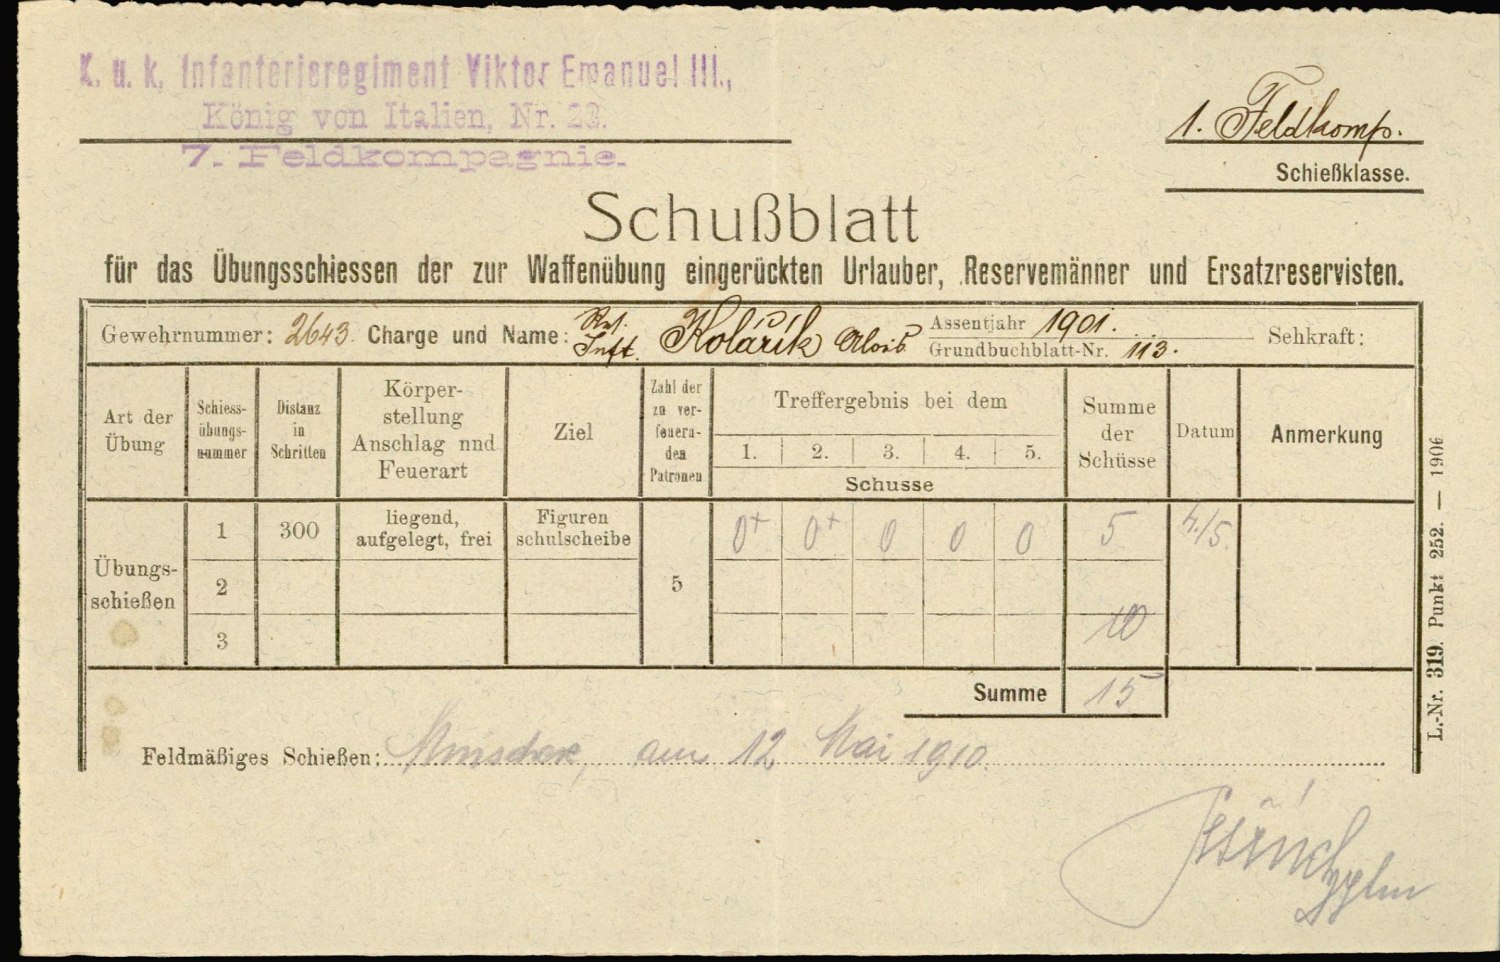 K. u. k. Infanterieregiment Viktor Emanuel III.,
König von Italien, Nr. 28.
7. Feldkompagnie.
1. Feldkomp.
Schießklasse.
Schußblatt
für das Übungsschiessen der zur Waffenübung eingerückten Urlauber, Reservemänner und Ersatzreservisten.
Gewehrnummer: 2643 Charge und Name: Inft. Kolářík Alois Assentjahr 1901. Sehkraft:
Grundbuchblatt-Nr. 113.
Art der Übung
Schiess-übungs-nummer
Distanz in Schritten
Körper-stellung Anschlag nnd Feuerart
Ziel
Zahl der zu ver-feuern-den Patronen
Treffergebnis bei dem
1. 2. 3. 4. 5.
Schusse
Summe der Schüsse
Datum
Anmerkung
Übungs-schießen
1 300 liegend, aufgelegt, frei Figuren schulscheibe 5 0+ 0+ 0 0 0 5 4./5.
2
3 10
Summe 15
Feldmäßiges Schießen: am 12 Mai 1910.
L.-Nr. 319. Punkt 252. — 1906